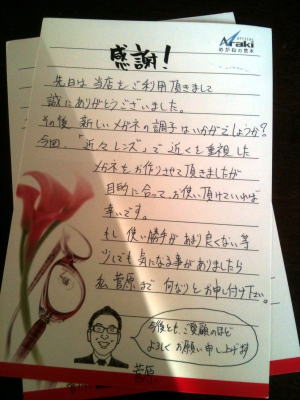 Araki
めがねの荒木
感謝！
先日は当店をご利用頂きまして
誠にありがとうございました。
その後 新しいメガネの調子はいかがでしょうか？
今回、「近々レンズ」で近くを重視した
メガネをお作りさせて頂きましたが
目的に合って、お使い頂けていれば
幸いです。
もし使い勝手があまり良くない等
少しでも気になる事がありましたら
私 菅原まで 何なりとお申し付け下さい。
今後とも、ご愛顧のほど
よろしくお願い申し上げます
菅原